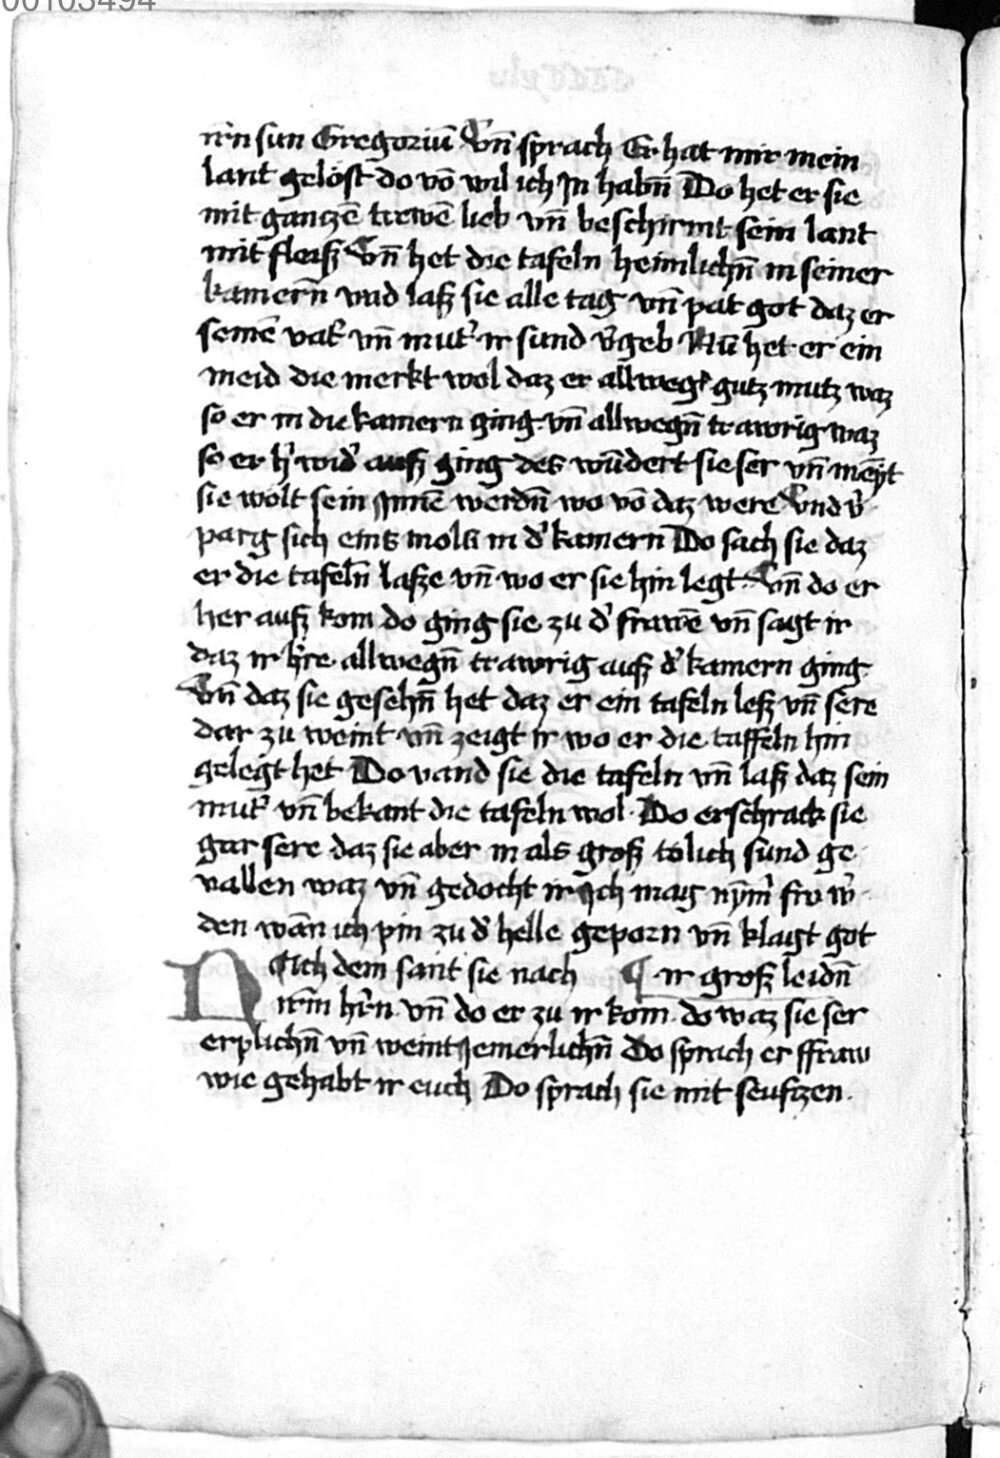 00103494
irn̄ sun Gregoriū Vn̄ sprach Er hat mir mein
lant gelost do vō wil ich In habn̄ Do het er sie
mit gantzē trewē lieb vn̄ beschirmt sein lant
mit fleiß Vn̄ het die tafeln heimlichn̄ in seiner
kamern̄ vnd laß sie alle tag vn̄ pat got daz er
seinē vat᷑ vn̄ mut᷑ ir sund v᷑geb Nū het er ein
meid die merkt wol daz er allweg gutz mutz waz
so er in die kamern ging vn̄ allwegn̄ trawrig waz
so er h᷑ wid᷑ auß ging des wūdert sie ser vn̄ meȳt
sie wolt sein Innē werdn̄ wo vō daz were Vnd v᷑
parg sich eins mols in d᷑ kamern Do sach sie daz
er die tafeln̄ laße vn̄ wo er sie hin legt Vn̄ do er
her auß kom do ging sie zu d᷑ frawē vn̄ sagt ir
daz ir h᷑re allwegn̄ trawrig auß d᷑ kamern ging
Vn̄ daz sie gesehn̄ het daz er ein tafeln leß vn̄ sere
dar zu weint vn̄ zeigt ir wo er die taffeln hin
gelegt het Do vand sie die tafeln vn̄ laß daz sein
mut᷑ vn̄ bekant die tafeln wol Do erschrack sie
gar sere daz sie aber in als groß tolich sund ge
vallen waz vn̄ gedocht ir Ich mag nȳm᷑ fro w᷑
den wān ich pin zu d᷑ helle geporn vn̄ klagt got
Nich dem sant sie nach ¶ ir groß leidn̄
irm̄ hr̄n vn̄ do er zu ir kom do waz sie ser
erplichn̄ vn̄ weint Jemerlichn̄ Do sprach er ffraw
wie gehabt ir euch Do sprach sie mit seuftzen